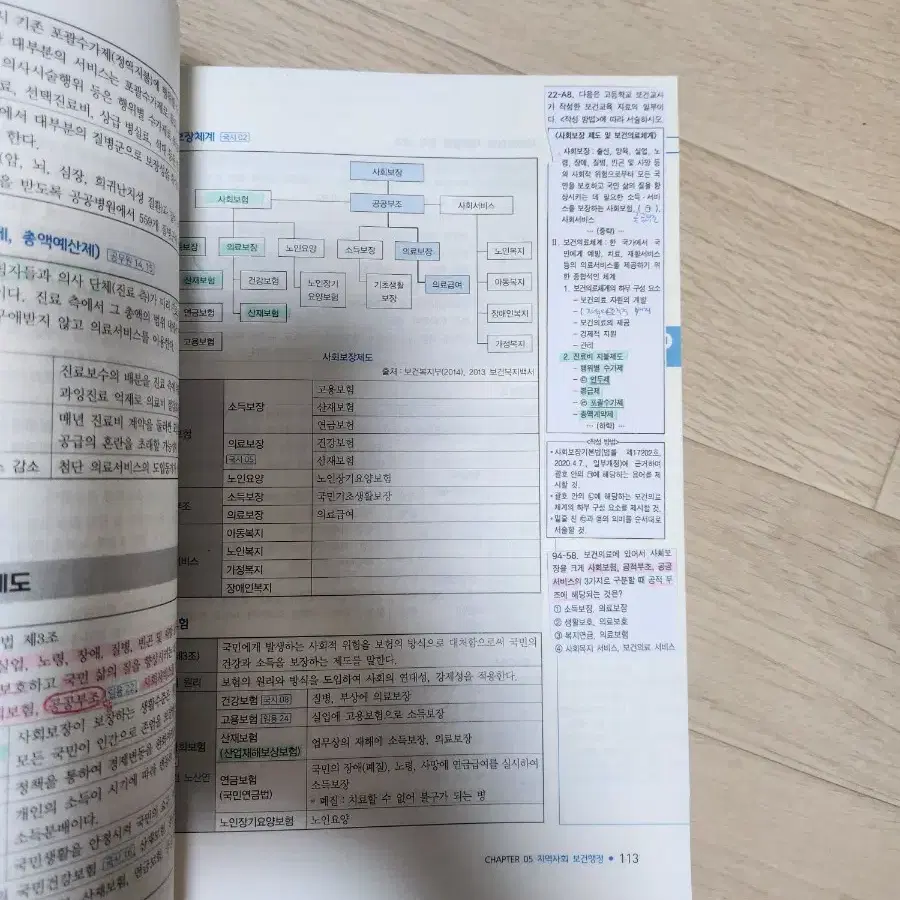 시 기존 포괄수가제(정액지불)에
대부분의 서비스는 포괄수가제로
의사시술행위 등은 행위별 수가제
료, 선택진료비, 상급 병실료,
에서 대부분의 질병군으로 보장성을
한다.
(암, 뇌, 심장, 희귀난치성 질환)
을 받도록 공공병원에서 559개
제, 총액예산제) 공무원 14, 15
자들과 의사 단체(진료 측)가
이다. 진료 측에서 그 총액의 범위
구애받지 않고 의료서비스를 이용한다.
진료보수의 배분을 진료 측에
과잉진료 억제로 의료비
매년 진료비 계약을 둘러싼
공급의 혼란을 초래할 가능
감소
첨단 의료서비스의 도입
제도
법 제3조
실업, 노령, 장애, 질병, 빈곤 및
보호하고 국민 삶의 질을 향상시키는
보험, 공공부조 임용 22
사회보장이 보장하는 생활수준은
모든 국민이 인간으로 존엄을
정책을 통하여 경제변동을
개인의 소득이 시기에 따라
소득분배이다.
국민생활을 안정시켜 국민의
국민건강보험
산재보험, 연금보험,
보장체계 국시 02
사회보장
사회보험
공공부조
사회서비스
의료보장
노인요양
소득보장
의료보장
노인복지
산재보험
건강보험
노인장기
요양보험
기초생활
보장
의료급여
아동복지
연금보험
산재보험
장애인복지
고용보험
가정복지
사회보장제도
출처 : 보건복지부(2014), 2013 보건복지백서
소득보장
고용보험
산재보험
연금보험
의료보장
국시 05
건강보험
산재보험
노인요양
노인장기요양보험
소득보장
국민기초생활보장
의료보장
의료급여
아동복지
노인복지
가정복지
장애인복지
험
국민에게 발생하는 사회적 위험을 보험의 방식으로 대처함으로써 국민의
건강과 소득을 보장하는 제도를 말한다.
원리
보험의 원리와 방식을 도입하여 사회의 연대성, 강제성을 적용한다.
건강보험 국시 08
질병, 부상에 의료보장
고용보험 임용 24
실업에 고용보험으로 소득보장
산재보험
(산업재해보상보험)
업무상의 재해에 소득보장, 의료보장
연금보험
(국민연금법)
국민의 장애(폐질), 노령, 사망에 연금급여를 실시하여
소득보장
* 폐질 : 치료할 수 없어 불구가 되는 병
노인장기요양보험
노인요양
22-A8. 다음은 고등학교 보건교사
가 작성한 보건교육 자료의 일부이
다. <작성 방법>에 따라 서술하시오.
<사회보장 제도 및 보건의료체계>
사회보장 : 출산, 양육, 실업, 노
령, 장애, 질병, 빈곤 및 사망 등
의 사회적 위험으로부터 모든 국
민을 보호하고 국민 삶의 질을 향
상시키는 데 필요한 소득·서비
스를 보장하는 사회보험, ( ㉠ ),
사회서비스
… (중략) …
Ⅱ. 보건의료체계 : 한 국가에서 국
민에게 예방, 치료, 재활서비스
등의 의료서비스를 제공하기 위
한 종합적인 체계
1. 보건의료체계의 하부 구성 요소
- 보건의료 자원의 개발
- 보건의료의 제공
- 경제적 지원
- 관리
2. 진료비 지불제도
- 행위별 수가제
- ㉢ 인두제
- 봉급제
- ㉣ 포괄수가제
- 총액계약제
… (하략) …
<작성 방법>
• 사회보장기본법(법률 제17202호,
2020.4.7., 일부개정)에 근거하여
괄호 안의 ㉠에 해당하는 용어를 제
시할 것.
• 괄호 안의 ㉡에 해당하는 보건의료
체계의 하부 구성 요소를 제시할 것.
• 밑줄 친 ㉢과 ㉣의 의미를 순서대로
서술할 것.
94-58. 보건의료에 있어서 사회보
장을 크게 사회보험, 공적부조, 공공
서비스의 3가지로 구분할 때 공적 부
조에 해당되는 것은?
① 소득보장, 의료보장
② 생활보호, 의료보호
③ 복지연금, 의료보험
④ 사회복지 서비스, 보건의료 서비스
CHAPTER 05 지역사회 보건행정 • 113